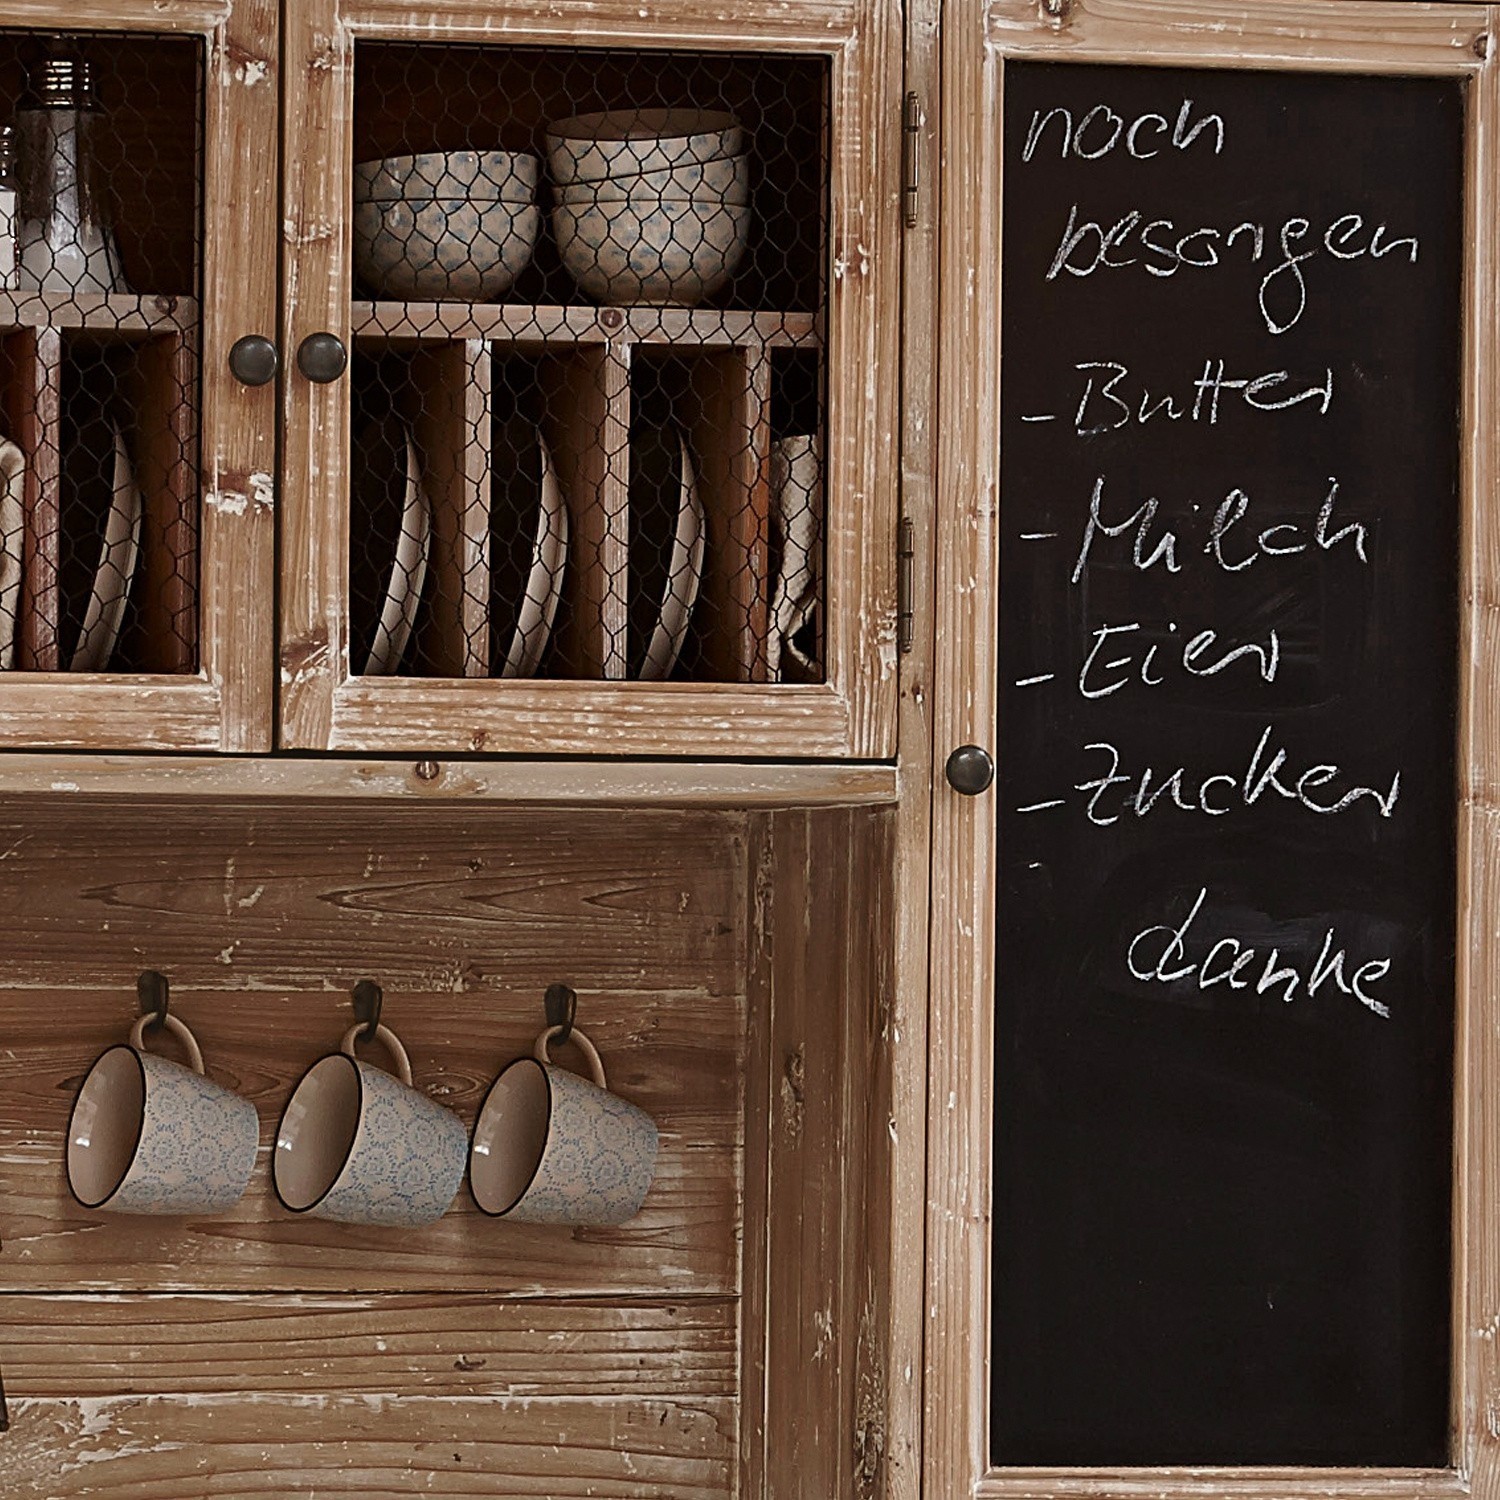 noch
besorgen
- Butter
- Milch
- Eier
- Zucker
-
danke